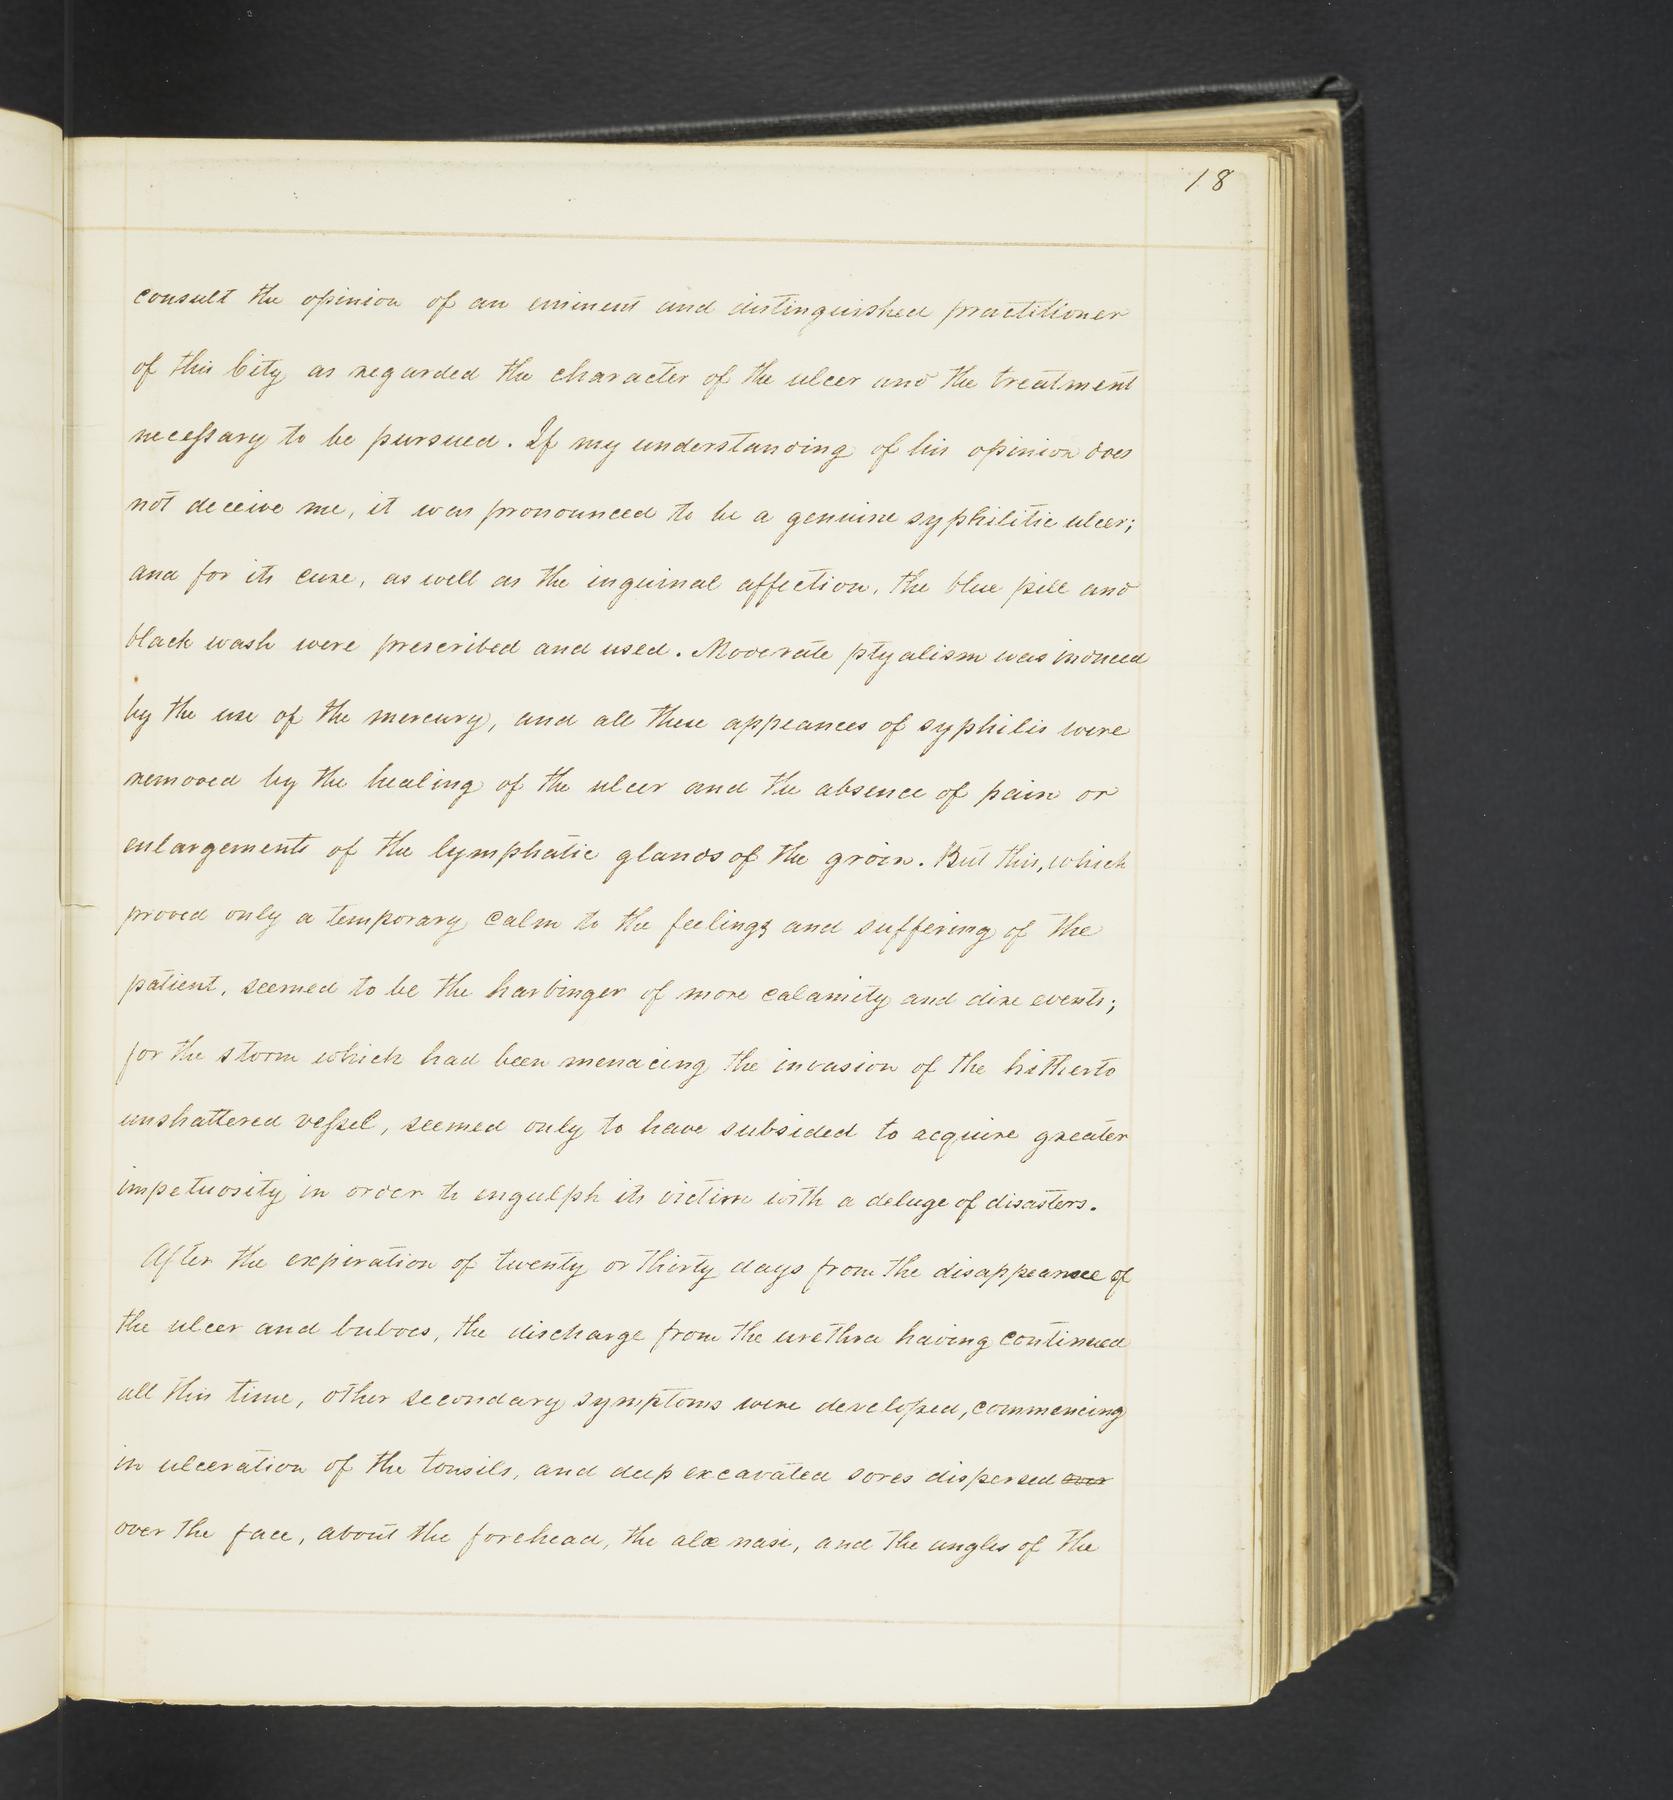 18
consult the opinion of an eminent and distinguished practitioner
of this City as regarded the character of the ulcer and the treatment
necessary to be pursued. If my understanding of his opinion does
not deceive me, it was pronounced to be a genuine syphilitic ulcer;
and for its cure, as well as the inguinal affection, the blue pill and
black wash were prescribed and used. Moderate ptyalism was induced
by the use of the mercury, and all these appeances of syphilis were
removed by the healing of the ulcer and the absence of pain or
enlargements of the lymphatic glands of the groin. But this, which
proved only a temporary calm to the feelings and suffering of the
patient, seemed to be the harbinger of more calamity and dire events;
for the storm which had been menacing the invasion of the hitherto
unshattered vessel, seemed only to have subsided to acquire greater
impetuosity in order to engulph its victim with a deluge of disasters.
After the expiration of twenty or thirty days from the disappearnce of
the ulcer and buboes, the discharge from the urethra having continued
all this time, other secondary symptoms were developed, commencing
in ulceration of the tonsils, and deep excavated sores dispersed over
over the face, about the forehead, the alæ nasi, and the angles of the